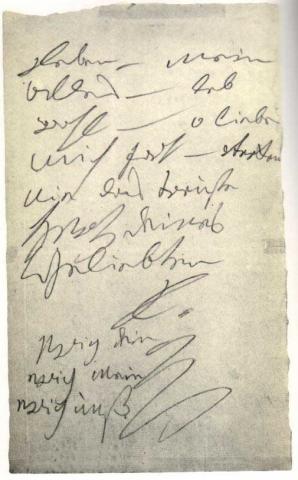 leben – Mein
alles – leb
wohl – o liebe
mich fort – verken
nie das treuste
Herz deines
Geliebten
L.
ewig dein
ewig mein
ewig unß